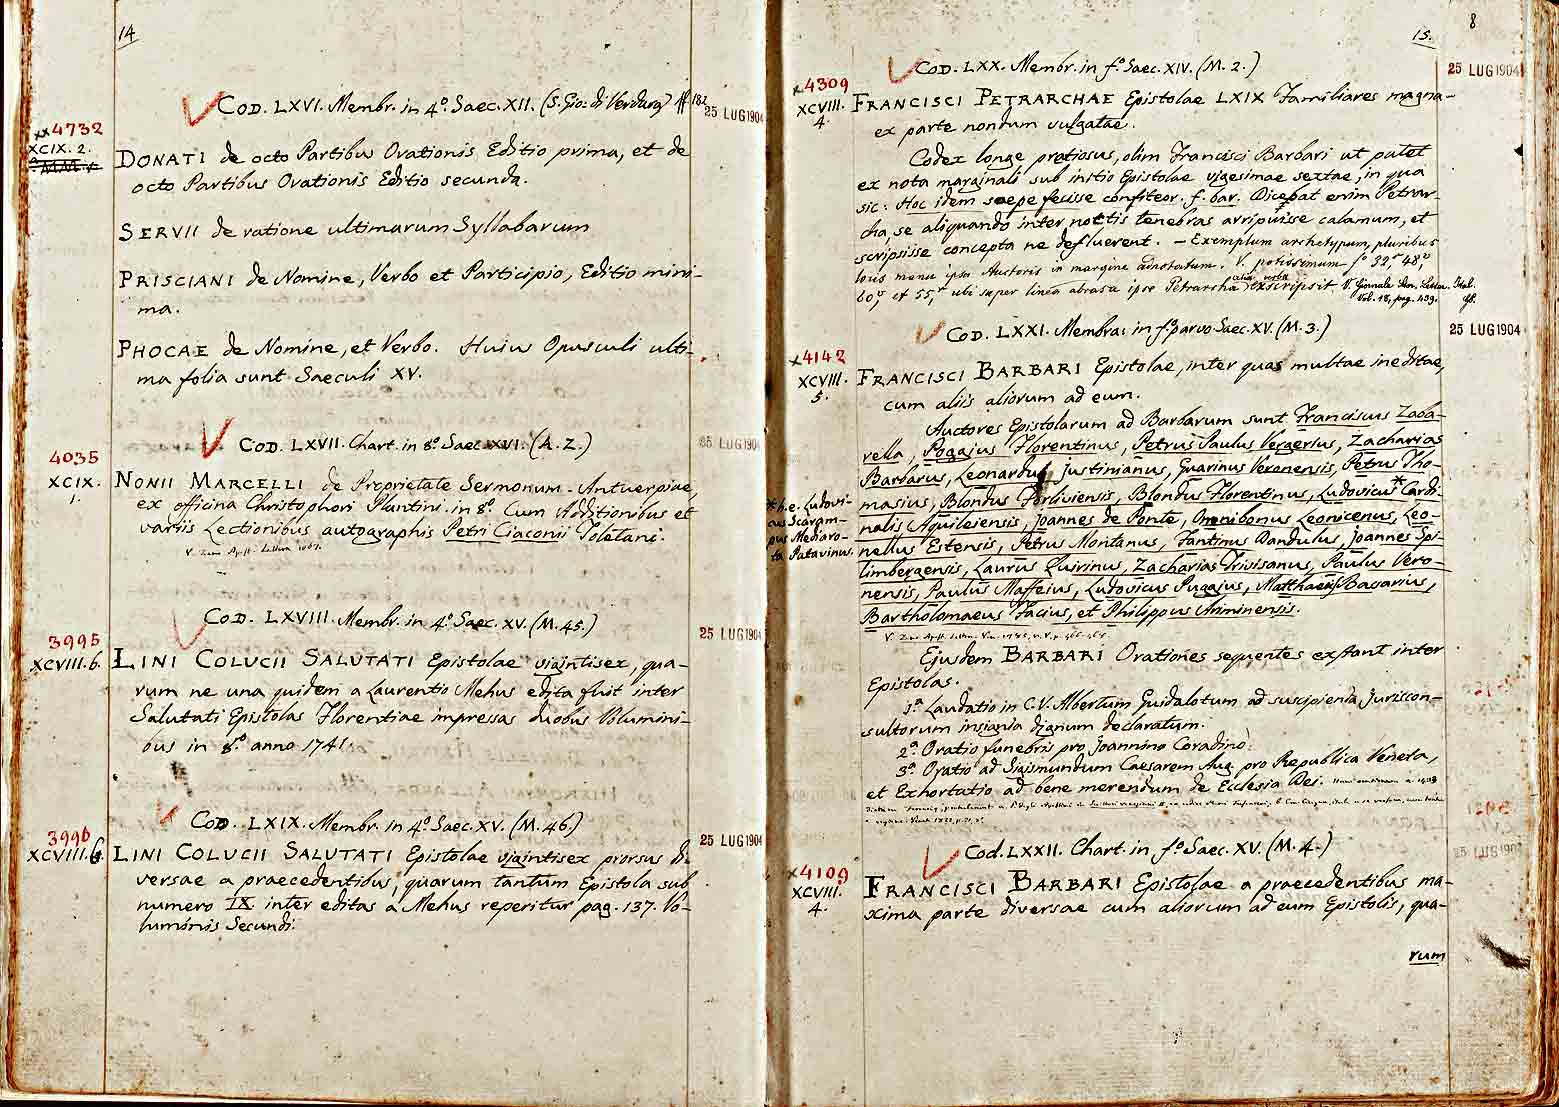 14
COD. LXVI. Membr. in 4.º Saec. XII. (S. Gio: di Verdura) ff. 182
25 LUG 1904
xx4732
XCIX. 2.
DONATI de octo Partibus Orationis Editio prima, et de
octo Partibus Orationis Editio secunda.
SERVII de ratione ultimarum Syllabarum
PRISCIANI de Nomine, Verbo et Participio, Editio mini-
ma.
PHOCAE de Nomine, et Verbo. Huius Opusculi ulti-
ma folia sunt Saeculi XV.
COD. LXVII. Chart. in 8.º Saec. XVI. (A. Z.)
25 LUG 1904
4035
XCIX.
1.
NONII MARCELLI de Proprietate Sermonum. Antuerpiae,
ex officina Christophori Plantini. in 8.º Cum Additionibus et
variis Lectionibus autographis Petri Ciaconii Toletani.
COD. LXVIII. Membr. in 4.º Saec. XV. (M. 45.)
25 LUG 1904
3995
XCVIII. 6.
LINI COLUCII SALUTATI Epistolae vigintisex, qua-
rum ne una quidem a Laurentio Mehus edita fuit inter
Salutati Epistolas Florentiae impressas duobus Volumini-
bus in 8.º anno 1741.
COD. LXIX. Membr. in 4.º Saec. XV. (M. 46.)
25 LUG 1904
3996
XCVIII. 6.
LINI COLUCII SALUTATI Epistolae vigintisex prorsus di-
versae a praecedentibus, quarum tantum Epistola sub
numero IX inter editas a Mehus reperitur pag. 137. Vo-
luminis Secundi.
8
15.
COD. LXX. Membr. in fº Saec. XIV. (M. 2.)
25 LUG 1904
x4309
XCVIII.
4.
FRANCISCI PETRARCHAE Epistolae LXIX Familiares magna-
ex parte nondum vulgatae.
Codex longe pretiosus, olim Francisci Barbari ut patet
ex nota marginali sub initio Epistolae vigesimae sextae, in qua
sic: Hoc idem saepe fecisse confiteor. f. bar. Dicebat enim Petrar-
cha, se aliquando inter noctis tenebras arripuisse calamum, et
scripsisse concepta ne defluerent. – Exemplum archetypum, pluribus
locis manu ipsius Auctoris in margine adnotatum. V. potissimum fº 32,r 48,v
60,v et 55,r ubi super linea abrasa ipse Petrarcha alia verba exscripsit. V. Giornale Stor. Letter. Ital.
Vol. 18, pag. 439.
COD. LXXI. Membr. in fº parvo Saec. XV. (M. 3.)
25 LUG 1904
x4142
XCVIII.
5.
FRANCISCI BARBARI Epistolae, inter quas multae ineditae,
cum aliis aliorum ad eum.
Auctores Epistolarum ad Barbarum sunt Franciscus Zaba-
rella, Pogajus Florentinus, Petrus Paulus Vergerius, Zacharias
Barbarus, Leonardus Justinianus, Guarinus Veronensis, Petrus Tho-
masius, Blondus Forliviensis, Blondus Florentinus, Ludovicus* Cardi-
nalis Aquileiensis, Joannes de Ponte, Omnibonus Leonicenus, Leo-
nellus Estensis, Petrus Montanus, Fantinus Dandulus, Joannes Spi-
limbergensis, Laurus Quirinus, Zacharias Trivisanus, Paulus Vero-
nensis, Paulus Maffeius, Ludovicus Pugajus, Matthaeus Bassarius,
Bartholomaeus Facius, et Philippus Ariminensis.
*h.e. Ludovi-
cus Scaram-
pus Mediaro-
ta Patavinus.
Ejusdem BARBARI Orationes sequentes exstant inter
Epistolas.
1.ª Laudatio in C.V. Albertum Guidalotum ad suscipienda Juriscon-
sultorum insignia dignum declaratum.
2.ª Oratio funebris pro Joannino Coradino.
3.ª Oratio ad Sigismundum Caesarem Aug. pro Republica Veneta,
et Exhortatio ad bene merendum de Ecclesia Dei.
Cod. LXXII. Chart. in fº Saec. XV. (M. 4.)
x4109
XCVIII.
4.
FRANCISCI BARBARI Epistolae a praecedentibus ma-
xima parte diversae cum aliorum ad eum Epistolis, qua-
rum